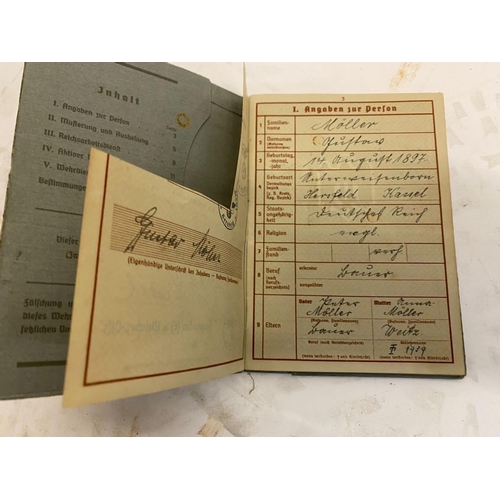 Inhalt
Seite
I. Angaben zur Person
II. Musterung und Aushebung
III. Reichsarbeitsdienst
IV. Aktiver
V. Wehrbe
Bestimmungen
Dieser
Fälschung u
dieses Wehr
setzlichen
Gustav Möller
(Eigenhändige Unterschrift des Inhabers
3
I. Angaben zur Person
1 Familien-
name
Möller
2 Vornamen
Gustav
3 Geburtstag,
-monat,
-jahr
14 August 1897
4 Geburtsort
Verwaltungs-
bezirk
Unterweisenborn
Hersfeld Kassel
5 Staats-
angehörig-
keit
Deutsches Reich
6 Religion
evgl.
7 Familien-
stand
verh
8 Beruf
erlernter
Bauer
ausgeübter
9 Eltern
Vater Peter
Möller
Bauer
Mutter Anna
Möller
Weitz
1919